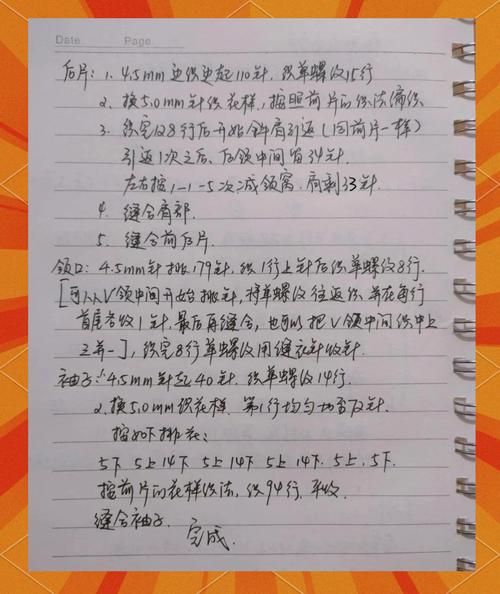 Date Page
后片：1. 4.5mm边织边起110针，织单螺纹15行
2、换5.0mm针织花样，按照前片的织法
3. 织完 8行后开始斜肩引返（同前片一样）
引返1次之后、后领中间留34针.
左右按1-1-5次减领窝，肩剩33针
4. 缝合肩部.
5. 缝合前后片.
领口：4.5mm针挑179针，织1行上针后织单螺纹8行.
[可从V领中间开始挑针，将单螺纹往返织 并在每行
首尾各收1针，最后再缝合，也可以把V领中间织中上
三并一]，织完8行单螺纹用缝衣针收针.
袖子：4.5mm针起40针，织单螺纹14行.
2、换5.0mm织花样. 第1行均匀加至 针.
按如下排花：
5下 5上 14下 5上 14下 5上 14下. 5上. 5下.
按前片的花样织法，织94行，平收.
缝合袖子.
完成.